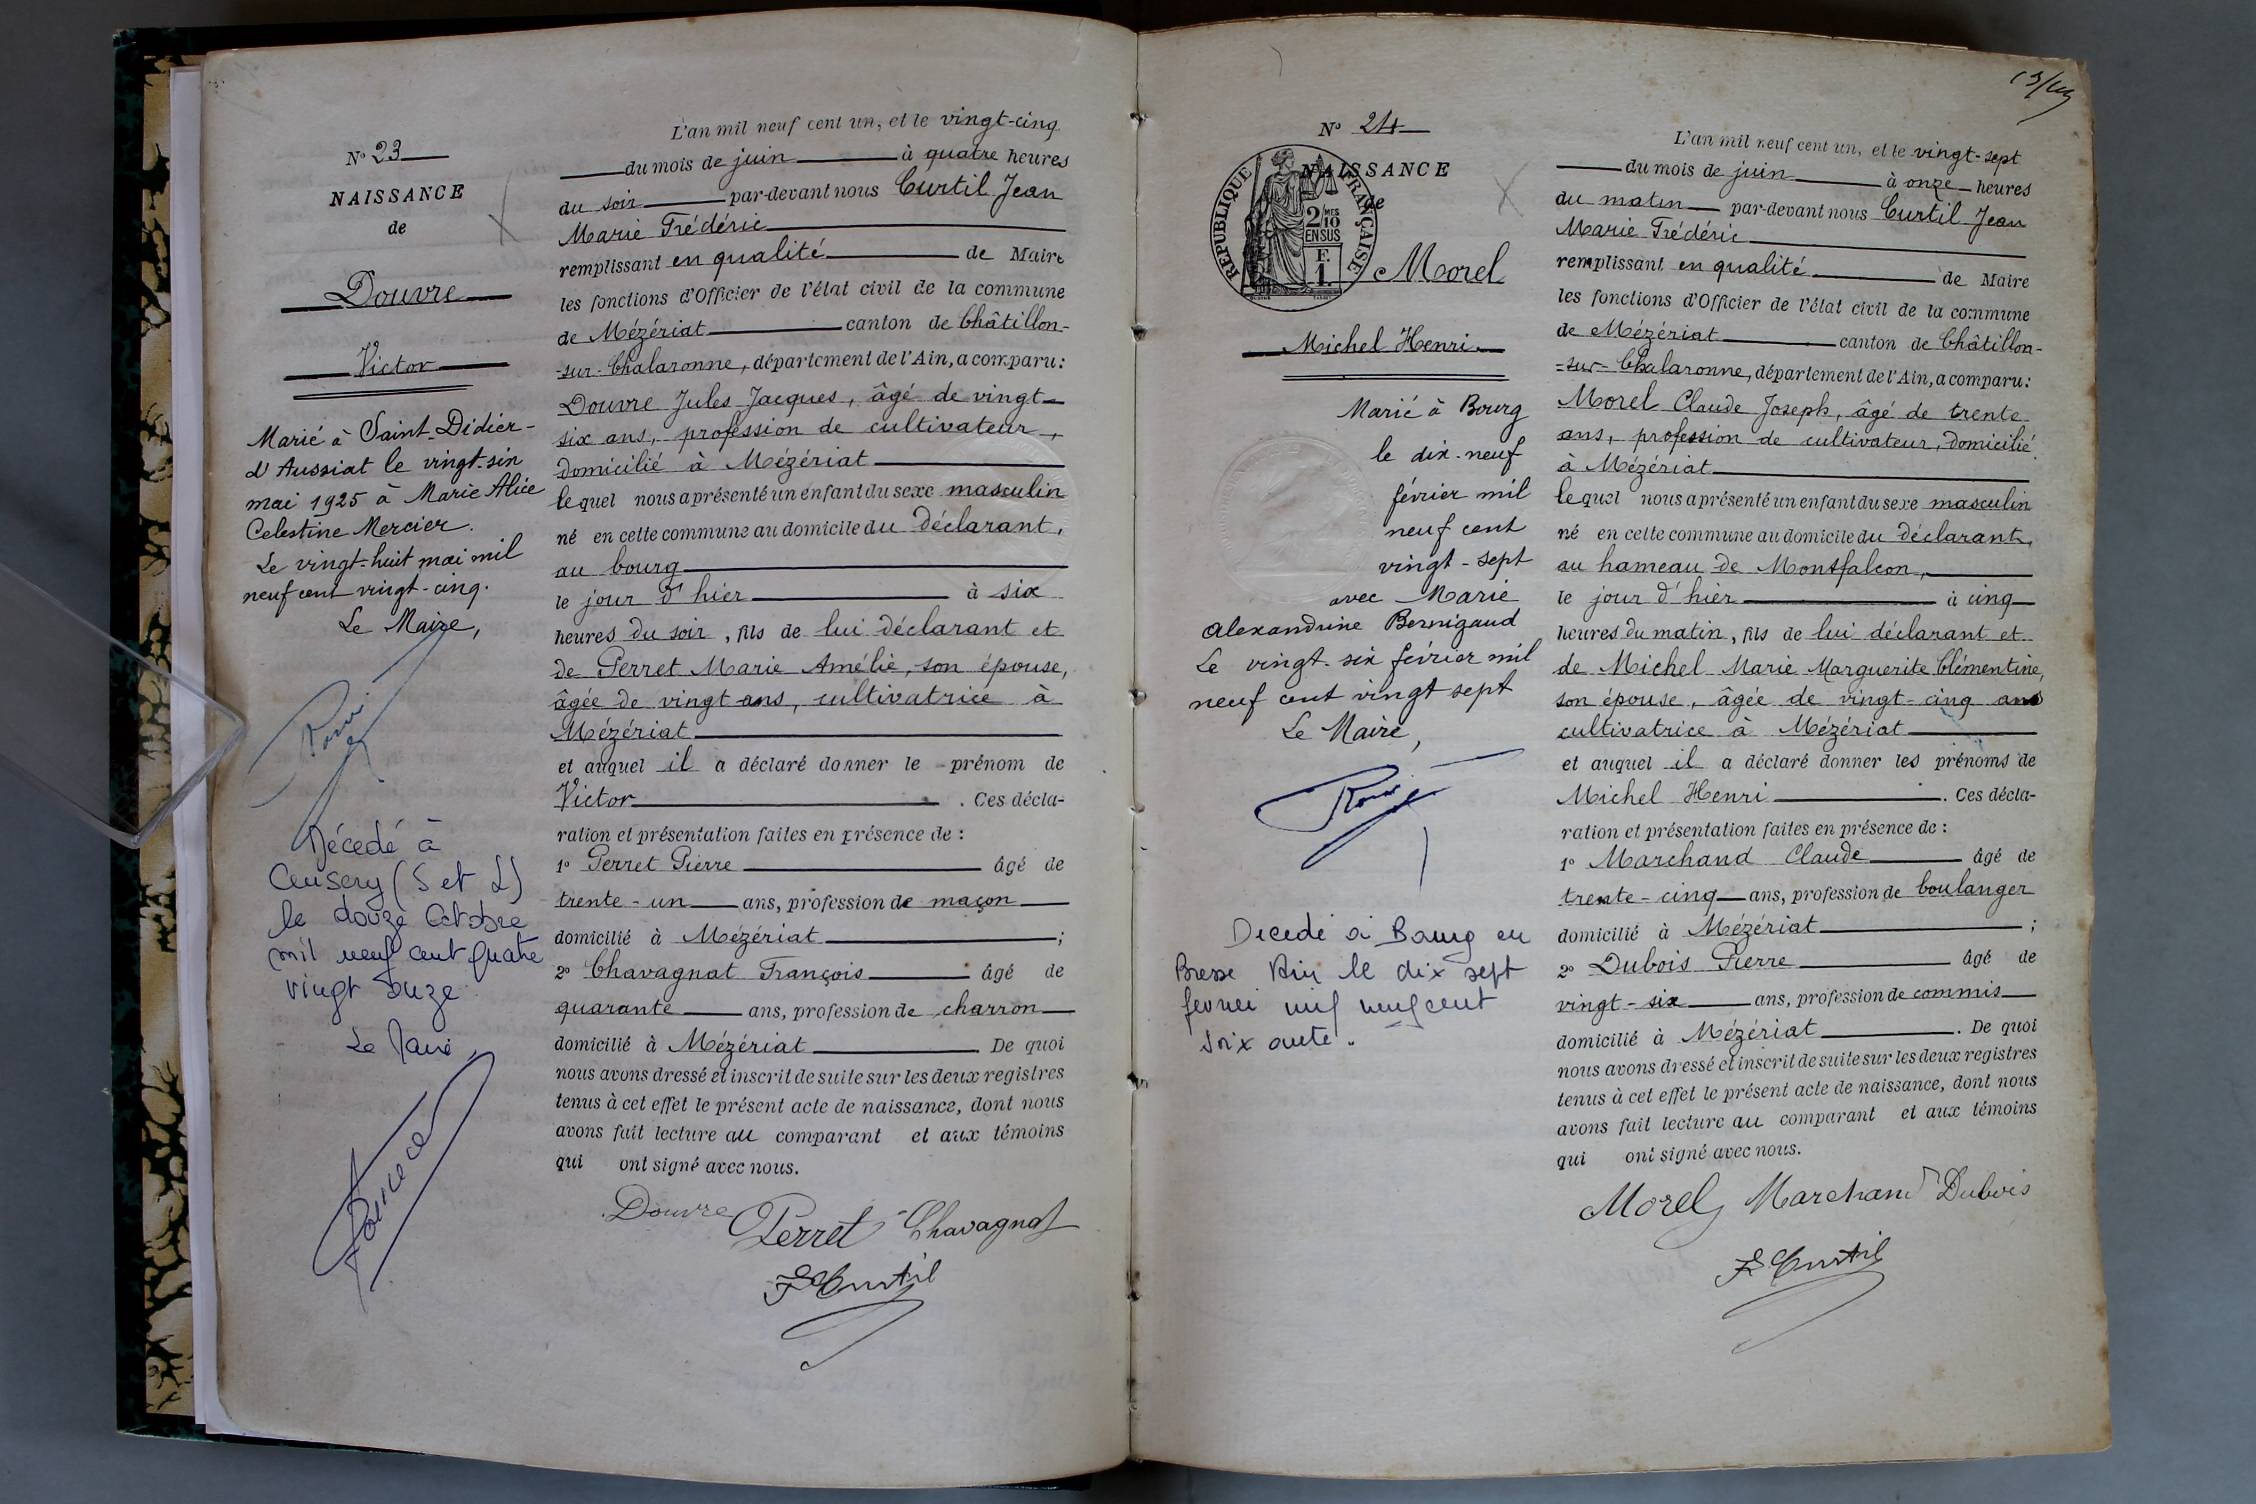 N° 23
NAISSANCE
de
Douvre
Victor
Marié à Saint-Didier-
d'Aussiat le vingt-six
mai 1925 à Marie Alice
Celestine Mercier.
Le vingt-huit mai mil
neuf cent vingt-cinq.
Le Maire,
Décédé à
(S et L)
le douze Octobre
mil neuf cent quatre
vingt onze
Le Maire,
L'an mil neuf cent un, et le vingt-cinq
du mois de juin à quatre heures
du soir par-devant nous Curtil Jean
Marie Frédéric
remplissant en qualité de Maire
les fonctions d'Officier de l'état civil de la commune
de Mézériat canton de Châtillon-
-sur-Chalaronne, département de l'Ain, a comparu:
Douvre Jules Jacques, âgé de vingt-
six ans, profession de cultivateur,
domicilié à Mézériat
lequel nous a présenté un enfant du sexe masculin
né en cette commune au domicile du déclarant,
au bourg
le jour d'hier à six
heures du soir, fils de lui déclarant et
de Perret Marie Amélie, son épouse,
âgée de vingt ans, cultivatrice à
Mézériat
et auquel il a déclaré donner le prénom de
Victor . Ces décla-
ration et présentation faites en présence de :
1° Perret Pierre âgé de
trente-un ans, profession de maçon
domicilié à Mézériat ;
2° Chavagnat François âgé de
quarante ans, profession de charron
domicilié à Mézériat De quoi
nous avons dressé et inscrit de suite sur les deux registres
tenus à cet effet le présent acte de naissance, dont nous
avons fait lecture au comparant et aux témoins
qui ont signé avec nous.
Douvre Perret Chavagnat
F Curtil
N° 24
NAISSANCE
de
REPUBLIQUE FRANÇAISE
2 MES
10
EN SUS
F.
1
Morel
Michel Henri
Marié à Bourg
le dix-neuf
février mil
neuf cent
vingt-sept
avec Marie
Alexandrine Bernigaud
Le vingt-six février mil
neuf cent vingt sept
Le Maire,
Decede à Bourg en
Bresse Ain le dix sept
fevrier mil neuf cent
soixante.
L'an mil neuf cent un, et le vingt-sept
du mois de juin à onze heures
du matin par-devant nous Curtil Jean
Marie Frédéric
remplissant en qualité de Maire
les fonctions d'Officier de l'état civil de la commune
de Mézériat canton de Châtillon-
-sur-Chalaronne, département de l'Ain, a comparu:
Morel Claude Joseph, âgé de trente
ans, profession de cultivateur, domicilié
à Mézériat
lequel nous a présenté un enfant du sexe masculin
né en cette commune au domicile du déclarant,
au hameau de Montfalcon,
le jour d'hier à cinq
heures du matin, fils de lui déclarant et
de Michel Marie Marguerite Clémentine,
son épouse, âgée de vingt-cinq ans
cultivatrice à Mézériat
et auquel il a déclaré donner les prénoms de
Michel Henri . Ces décla-
ration et présentation faites en présence de :
1° Marchand Claude âgé de
trente-cinq ans, profession de boulanger
domicilié à Mézériat ;
2° Dubois Pierre âgé de
vingt-six ans, profession de commis
domicilié à Mézériat . De quoi
nous avons dressé et inscrit de suite sur les deux registres
tenus à cet effet le présent acte de naissance, dont nous
avons fait lecture au comparant et aux témoins
qui ont signé avec nous.
Morel Marchand Dubois
F Curtil